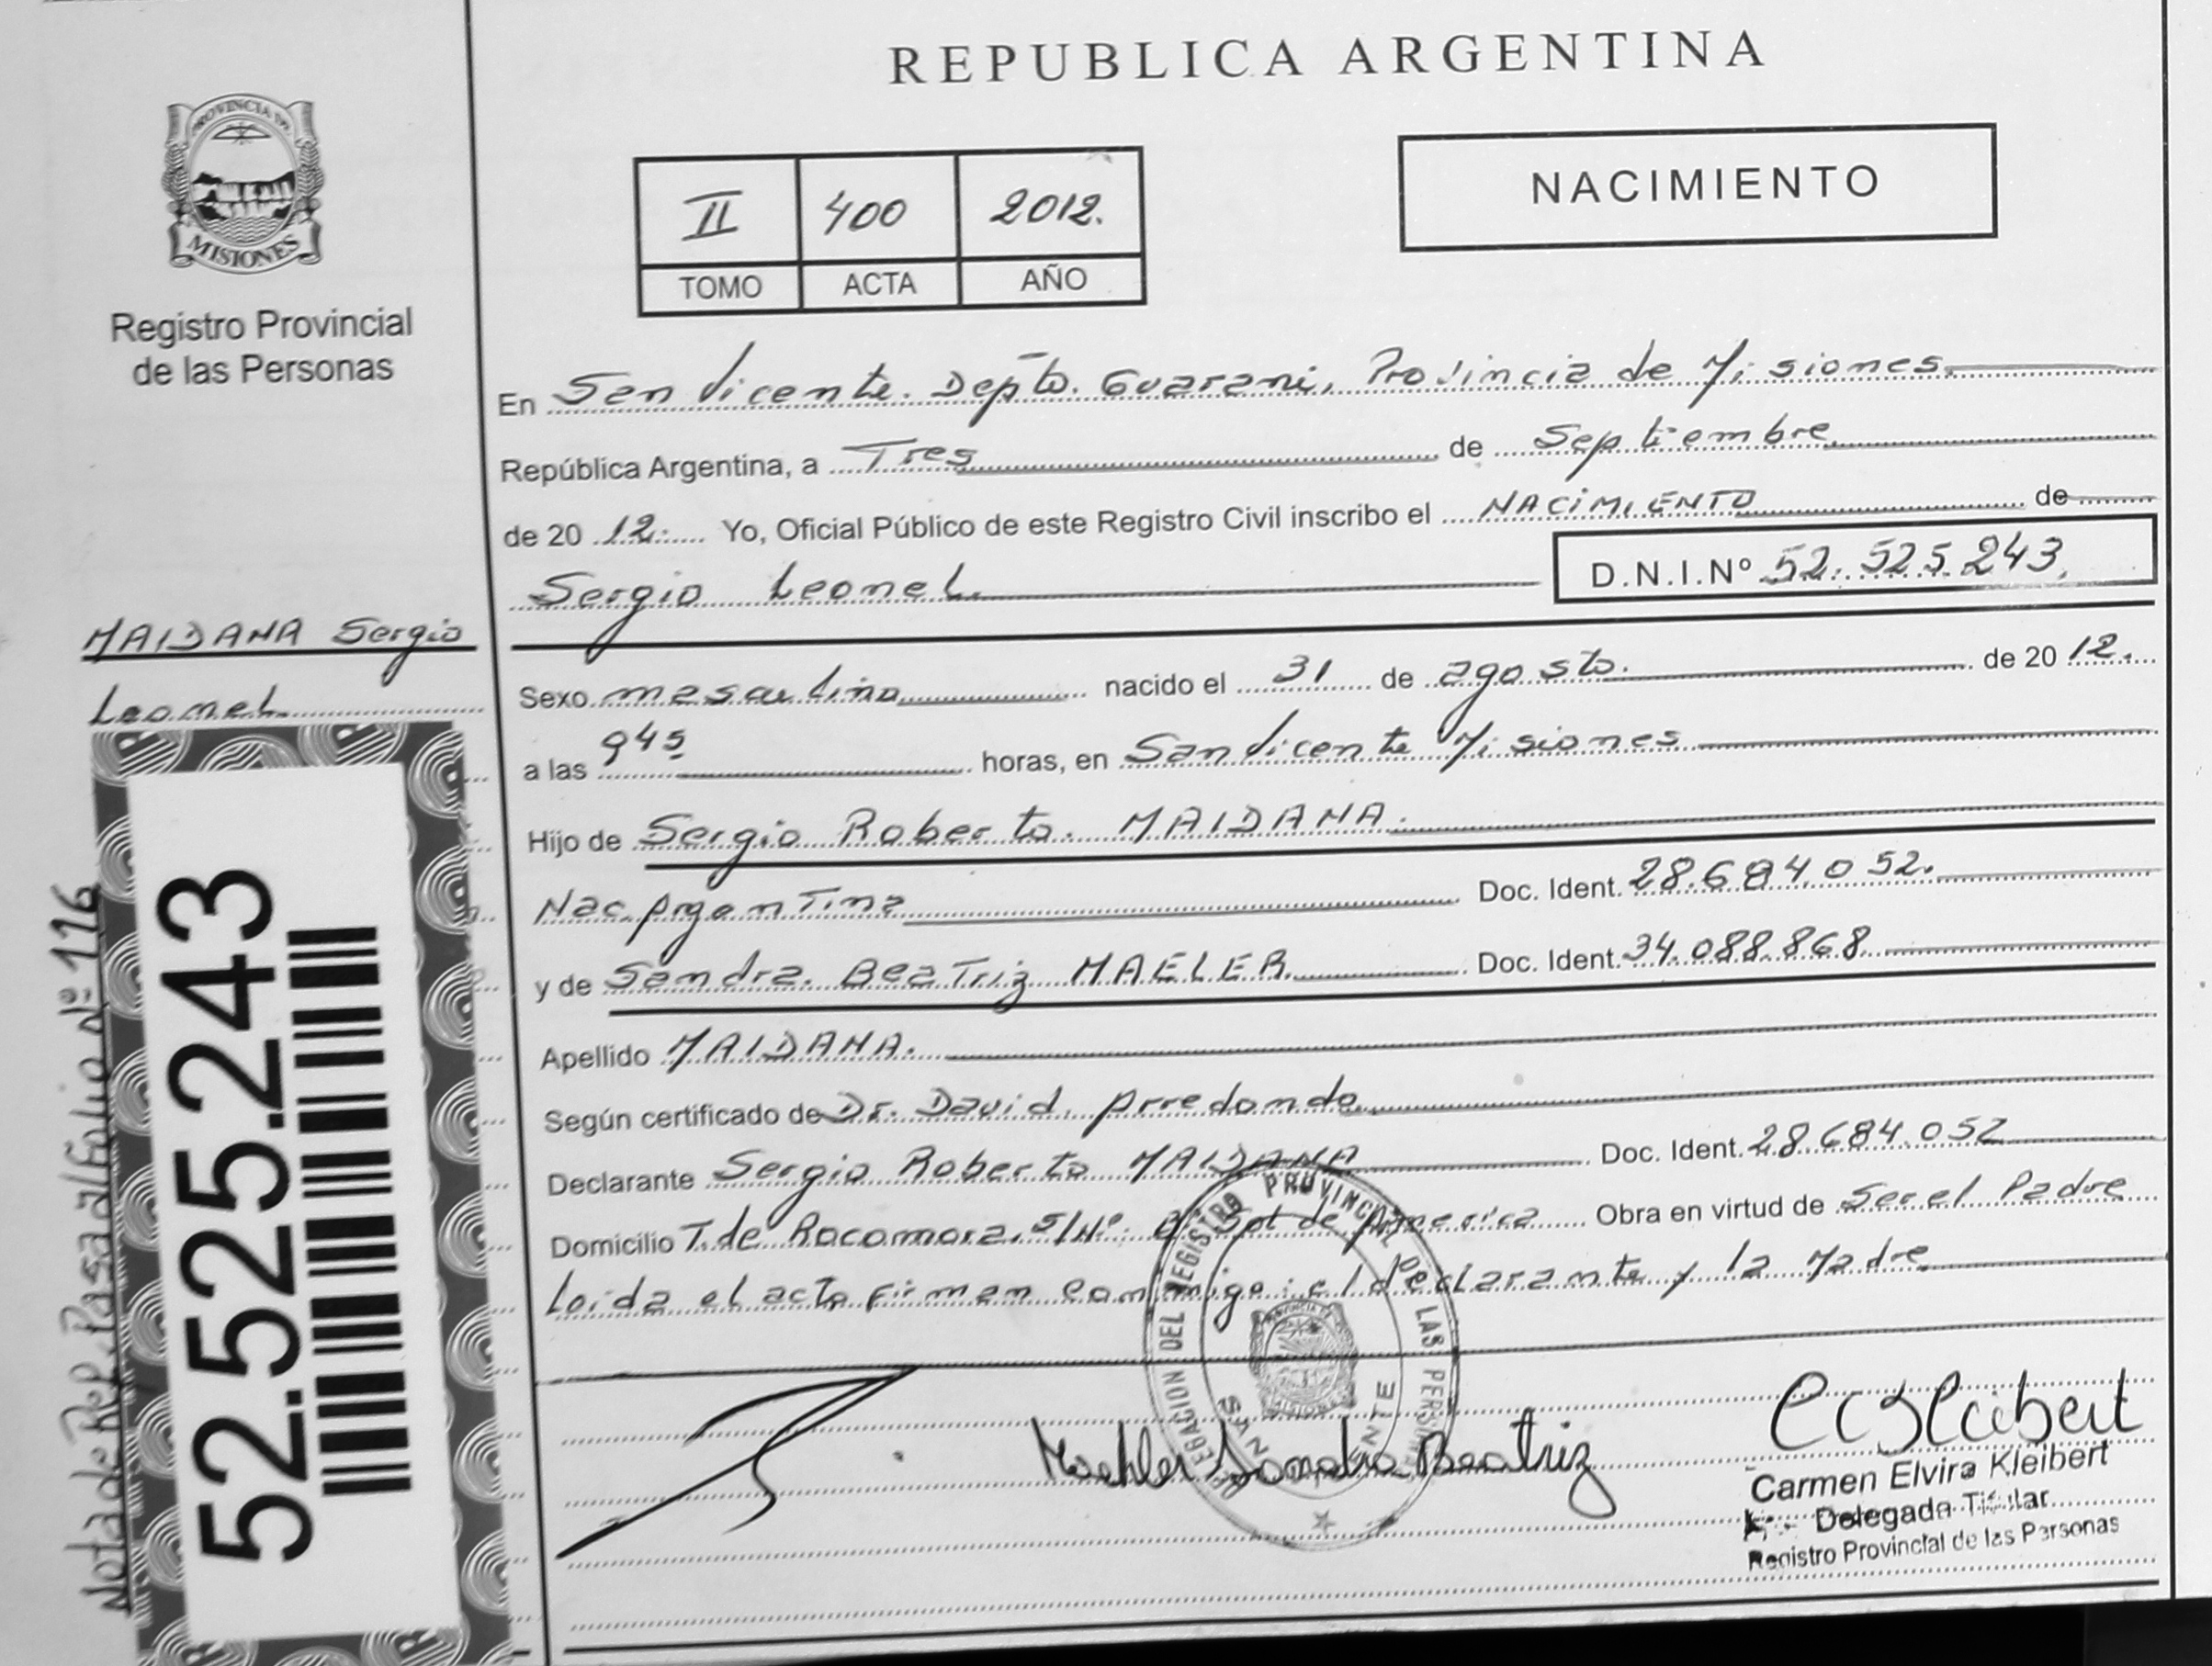 REPUBLICA ARGENTINA
PROVINCIA DE
MISIONES
Registro Provincial
de las Personas
II 400 2012.
TOMO ACTA AÑO
NACIMIENTO
En San Vicente. Depto. Guarani, Provincia de Misiones.
República Argentina, a Tres de Septiembre
de 20 12. Yo, Oficial Público de este Registro Civil inscribo el NACIMIENTO de
Sergio Leonel. D.N.I.Nº 52.525.243.
MAIDANA Sergio
Leonel
Sexo masculino nacido el 31 de agosto. de 20 12.
a las 9 45 horas, en San Vicente Misiones
Hijo de Sergio Roberto. MAIDANA.
Nac. Argentina Doc. Ident. 28.684.052.
y de Sandra. Beatriz MAELER. Doc. Ident. 34.088.868.
Apellido MAIDANA.
Según certificado de Dr. David. Arredondo
Declarante Sergio Roberto MAIDANA Doc. Ident. 28.684.052
Domicilio T. de Rocamora. S/Nº. Bº Sol de America Obra en virtud de Ser el Padre
Leida el acta firman conmigo: el declarante y la Madre
Nota de Rep. Pasada/Folio Nº 116
52.525.243
DELEGACION DEL REGISTRO PROVINCIAL DE LAS PERSONAS
Maehler Sandra Beatriz
Carmen Elvira Kleibert
Delegada Titular
Registro Provincial de las Personas